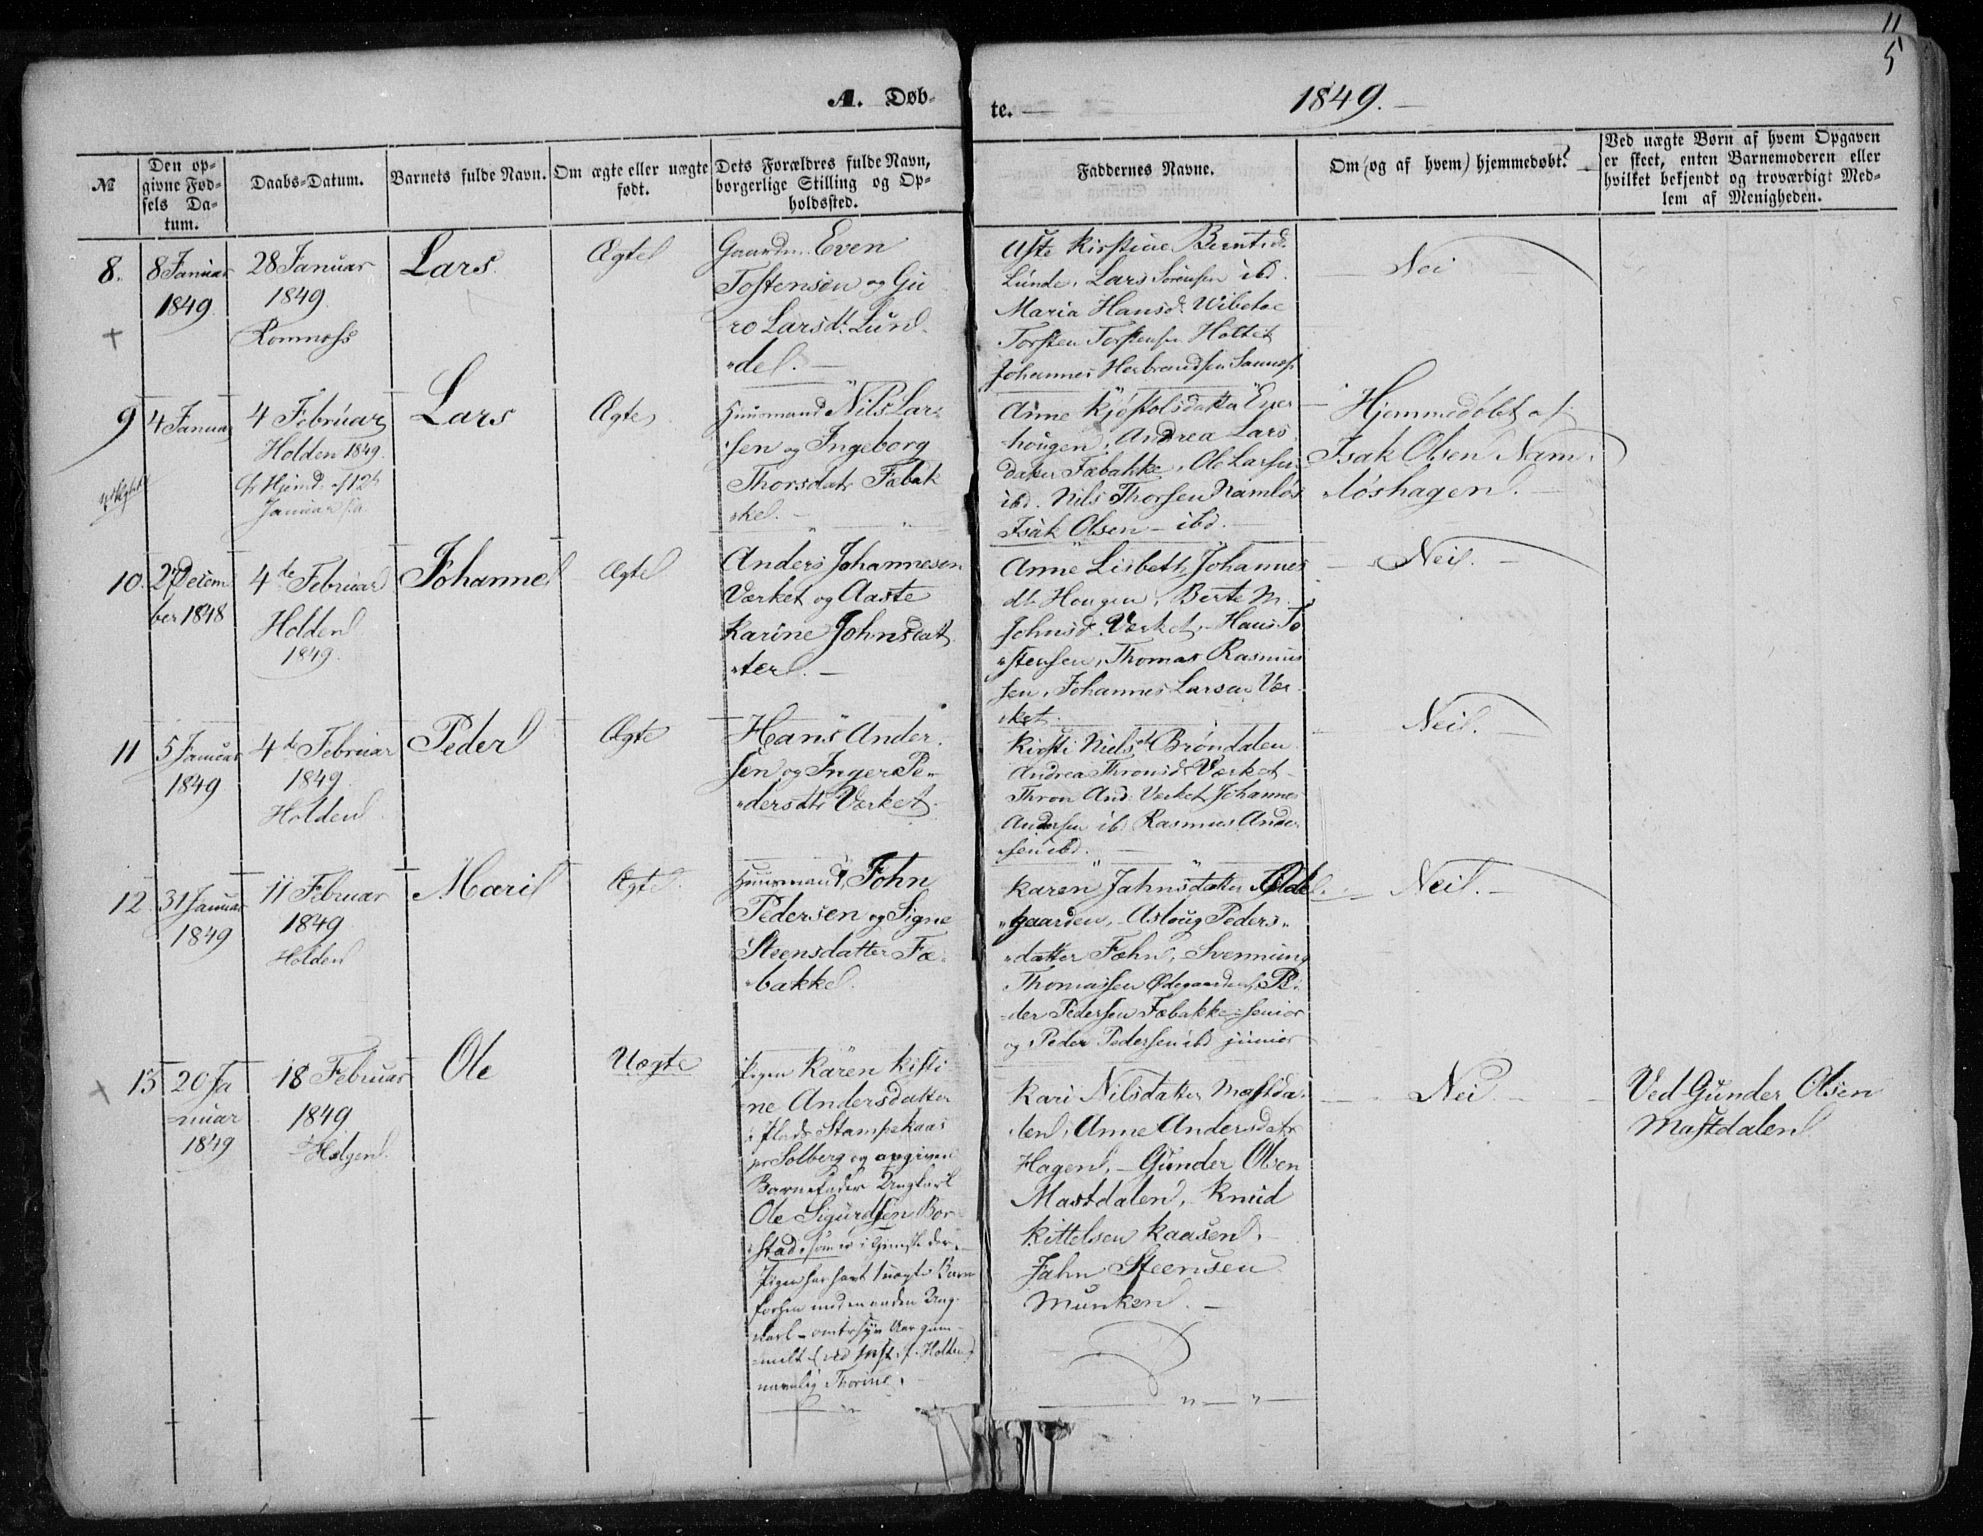 11
5
A. Døb-
te.
1849.
№
Den op-
givne Fød-
sels Da-
tum.
Daabs-Datum.
Barnets fulde Navn.
Om ægte eller uægte
født.
Dets Forældres fulde Navn,
borgerlige Stilling og Op-
holdssted.
Faddernes Navne.
Om (og af hvem) hjemmedøbt?
Ved uægte Børn af hvem Opgaven
er skeet, enten Barnemoderen eller
hvilket bekjendt og troværdigt Med-
lem af Menigheden.
8.
8 Januar
1849
28 Januar
1849.
Romnæss
Lars
Ægte
Gaardm. Even
Tostensen og Gu
ro Larsdt. Lun
del.
Aste Kirstine Berntsd.
Lunde, Lars Sørensen ibd.
Maria Hansd. Vibetoe
Torsten Torstensen Holtet
Johannes Herbrandsen Sannes
Nei
9
4 Januar
4 Februar
Holden 1849.
Januar
Lars
Ægte
Huusmand Nils Lar
sen og Ingeborg
Thorsdatr Fæbak
kel.
Anne Kjøstolsdatter
hougen, Andrea Lars
datter Fæbakke, Ole Larsen
ibd. Nils Thorsen Namløs
Isak Olsen - ibd.
Hjemmedøbt af
Isak Olsen Nam
løshagen.
10.
27 Decem
ber 1848
4de Februar
Holden
1849.
Johanne
Ægte
Anders Johannesen
Værket og Aaste
Karine Johnsdat
ter.
Anne Lisbeth Johannes
dt. Hougen, Berte M.
Johnsd. Værket, Hans To
stensen, Thomas Rasmus
sen, Johannes Larsen Vær
ket.
Nei.
11
5 Januar
1849
4de Februar
1849.
Holden
Peder
Ægte
Hans Ander
sen og Inger Pe
dersdtr Værket.
Kirsti Niels dt Brøndalen
Andrea Thronsd. Værket
Thron And. Værket, Johannes
Andersen ib. Rasmus Ander
sen ibd.
Nei.
12.
31 Januar
1849
11 Februar
1849
Holden
Mari
Ægte
Huusmand John
Pedersen og Signe
Steensdatter Fæ
bakke.
Karen Jahnsdatter Øde
gaarden, Asloug Peders
datter Fæhn, Svennung
Thomassen Ødegaarden, Pe
der Pedersen Fæbakke senior
og Peder Pedersen ibd junior
Nei.
13
20 Ja
nuar
1849
18 Februar
1849.
Helgen
Ole
Uægte
Pigen Karen Kisti
ne Andersdatter
Plads Stampekaas
Solberg og opgiven
Barnefader Ungkarl
Ole Sigurdsen Bor
stad, som er i Tjeneste der.
Pigen har havt 1 uægte Barn
forhen med en anden Ung
karl - omtr syv Aar gam
melt
navnlig Thorine.
Kari Nilsdatter Mastda
len, Anne Andersdatr
Hagen, - Gunder Olsen
Mastdalen, Knud
Kittelsen Kaasen,
Jahn Steensen
Munken.
Nei
Ved Gunder Olsen
Mastdalen